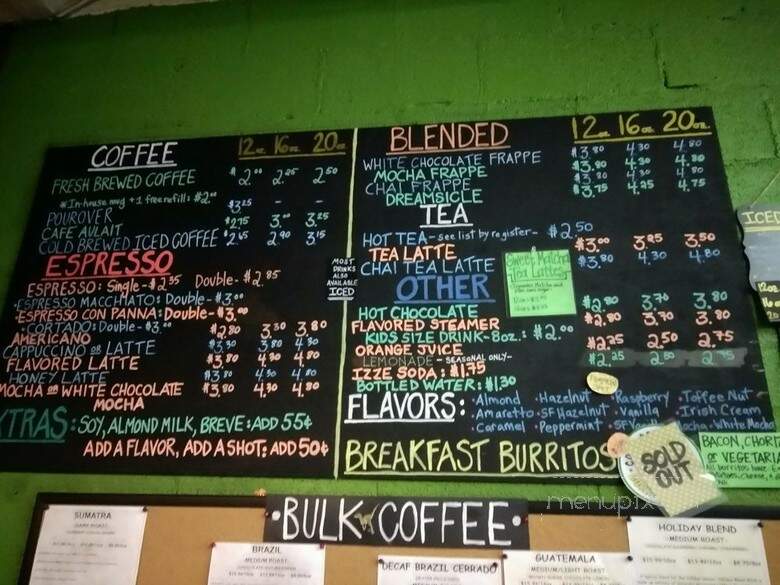 COFFEE 12oz 16oz 20oz
FRESH BREWED COFFEE $2.00 2.25 2.50
*In-house mug +1 free refills $2.00
POUROVER $3.25 - -
CAFE AULAIT $2.75 3.00 3.25
COLD BREWED ICED COFFEE $2.65 2.90 3.15
ESPRESSO
ESPRESSO: Single-$2.35 Double-$2.85
ESPRESSO MACCHIATO: Double-$3.00
ESPRESSO CON PANNA: Double-$3.00
CORTADO: Double-$3.00
AMERICANO $2.80 3.30 3.80
CAPPUCCINO OR LATTE $3.30 3.80 4.30
FLAVORED LATTE $3.80 4.30 4.80
HONEY LATTE $3.80 4.30 4.80
MOCHA OR WHITE CHOCOLATE MOCHA $3.80 4.30 4.80
XTRAS: SOY, ALMOND MILK, BREVE: ADD 55¢
ADD A FLAVOR, ADD A SHOT: ADD 50¢
MOST
DRINKS
ALSO
AVAILABLE
ICED
BLENDED 12oz 16oz 20oz
WHITE CHOCOLATE FRAPPE $3.80 4.30 4.80
MOCHA FRAPPE $3.80 4.30 4.80
CHAI FRAPPE $3.80 4.30 4.80
DREAMSICLE $3.75 4.25 4.75
TEA
HOT TEA-see list by register-$2.50
TEA LATTE $3.00 3.25 3.50
CHAI TEA LATTE $3.80 4.30 4.80
Sweet Matcha
Tea Lattes
OTHER
HOT CHOCOLATE $2.80 3.70 3.80
FLAVORED STEAMER $2.80 3.70 3.80
KIDS SIZE DRINK-8oz.: $2.00
ORANGE JUICE $2.25 2.50 2.75
LEMONADE-SEASONAL ONLY- $2.25 2.50 2.75
IZZE SODA: $1.75
BOTTLED WATER: $1.30
FLAVORS: •Almond •Hazelnut •Raspberry •Toffee Nut
•Amaretto •SF Hazelnut •Vanilla •Irish Cream
•Caramel •Peppermint •SF Mocha •White Mocha
BREAKFAST BURRITOS
SOLD
OUT
BACON, CHOR
OR VEGETARIA
ICED
12oz
menupix
•BULK COFFEE•
SUMATRA
DARK ROAST
BRAZIL
MEDIUM ROAST
DECAF BRAZIL CERRADO
GUATEMALA
MEDIUM/LIGHT ROAST
HOLIDAY BLEND
MEDIUM ROAST